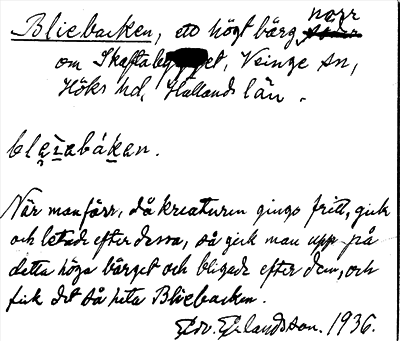 Bliebacken, ett högt bärg norr
om Skaftaby, Veinge sn,
Höks hd, Hallands län.
bleìabákan.
När man förr, då kreaturen gingo fritt, gick
och letade efter dessa, så gick man upp på
detta höga bärget och bligade efter dem, och
fick det så heta Bliebacken.
Edv. Erlandsson. 1936.